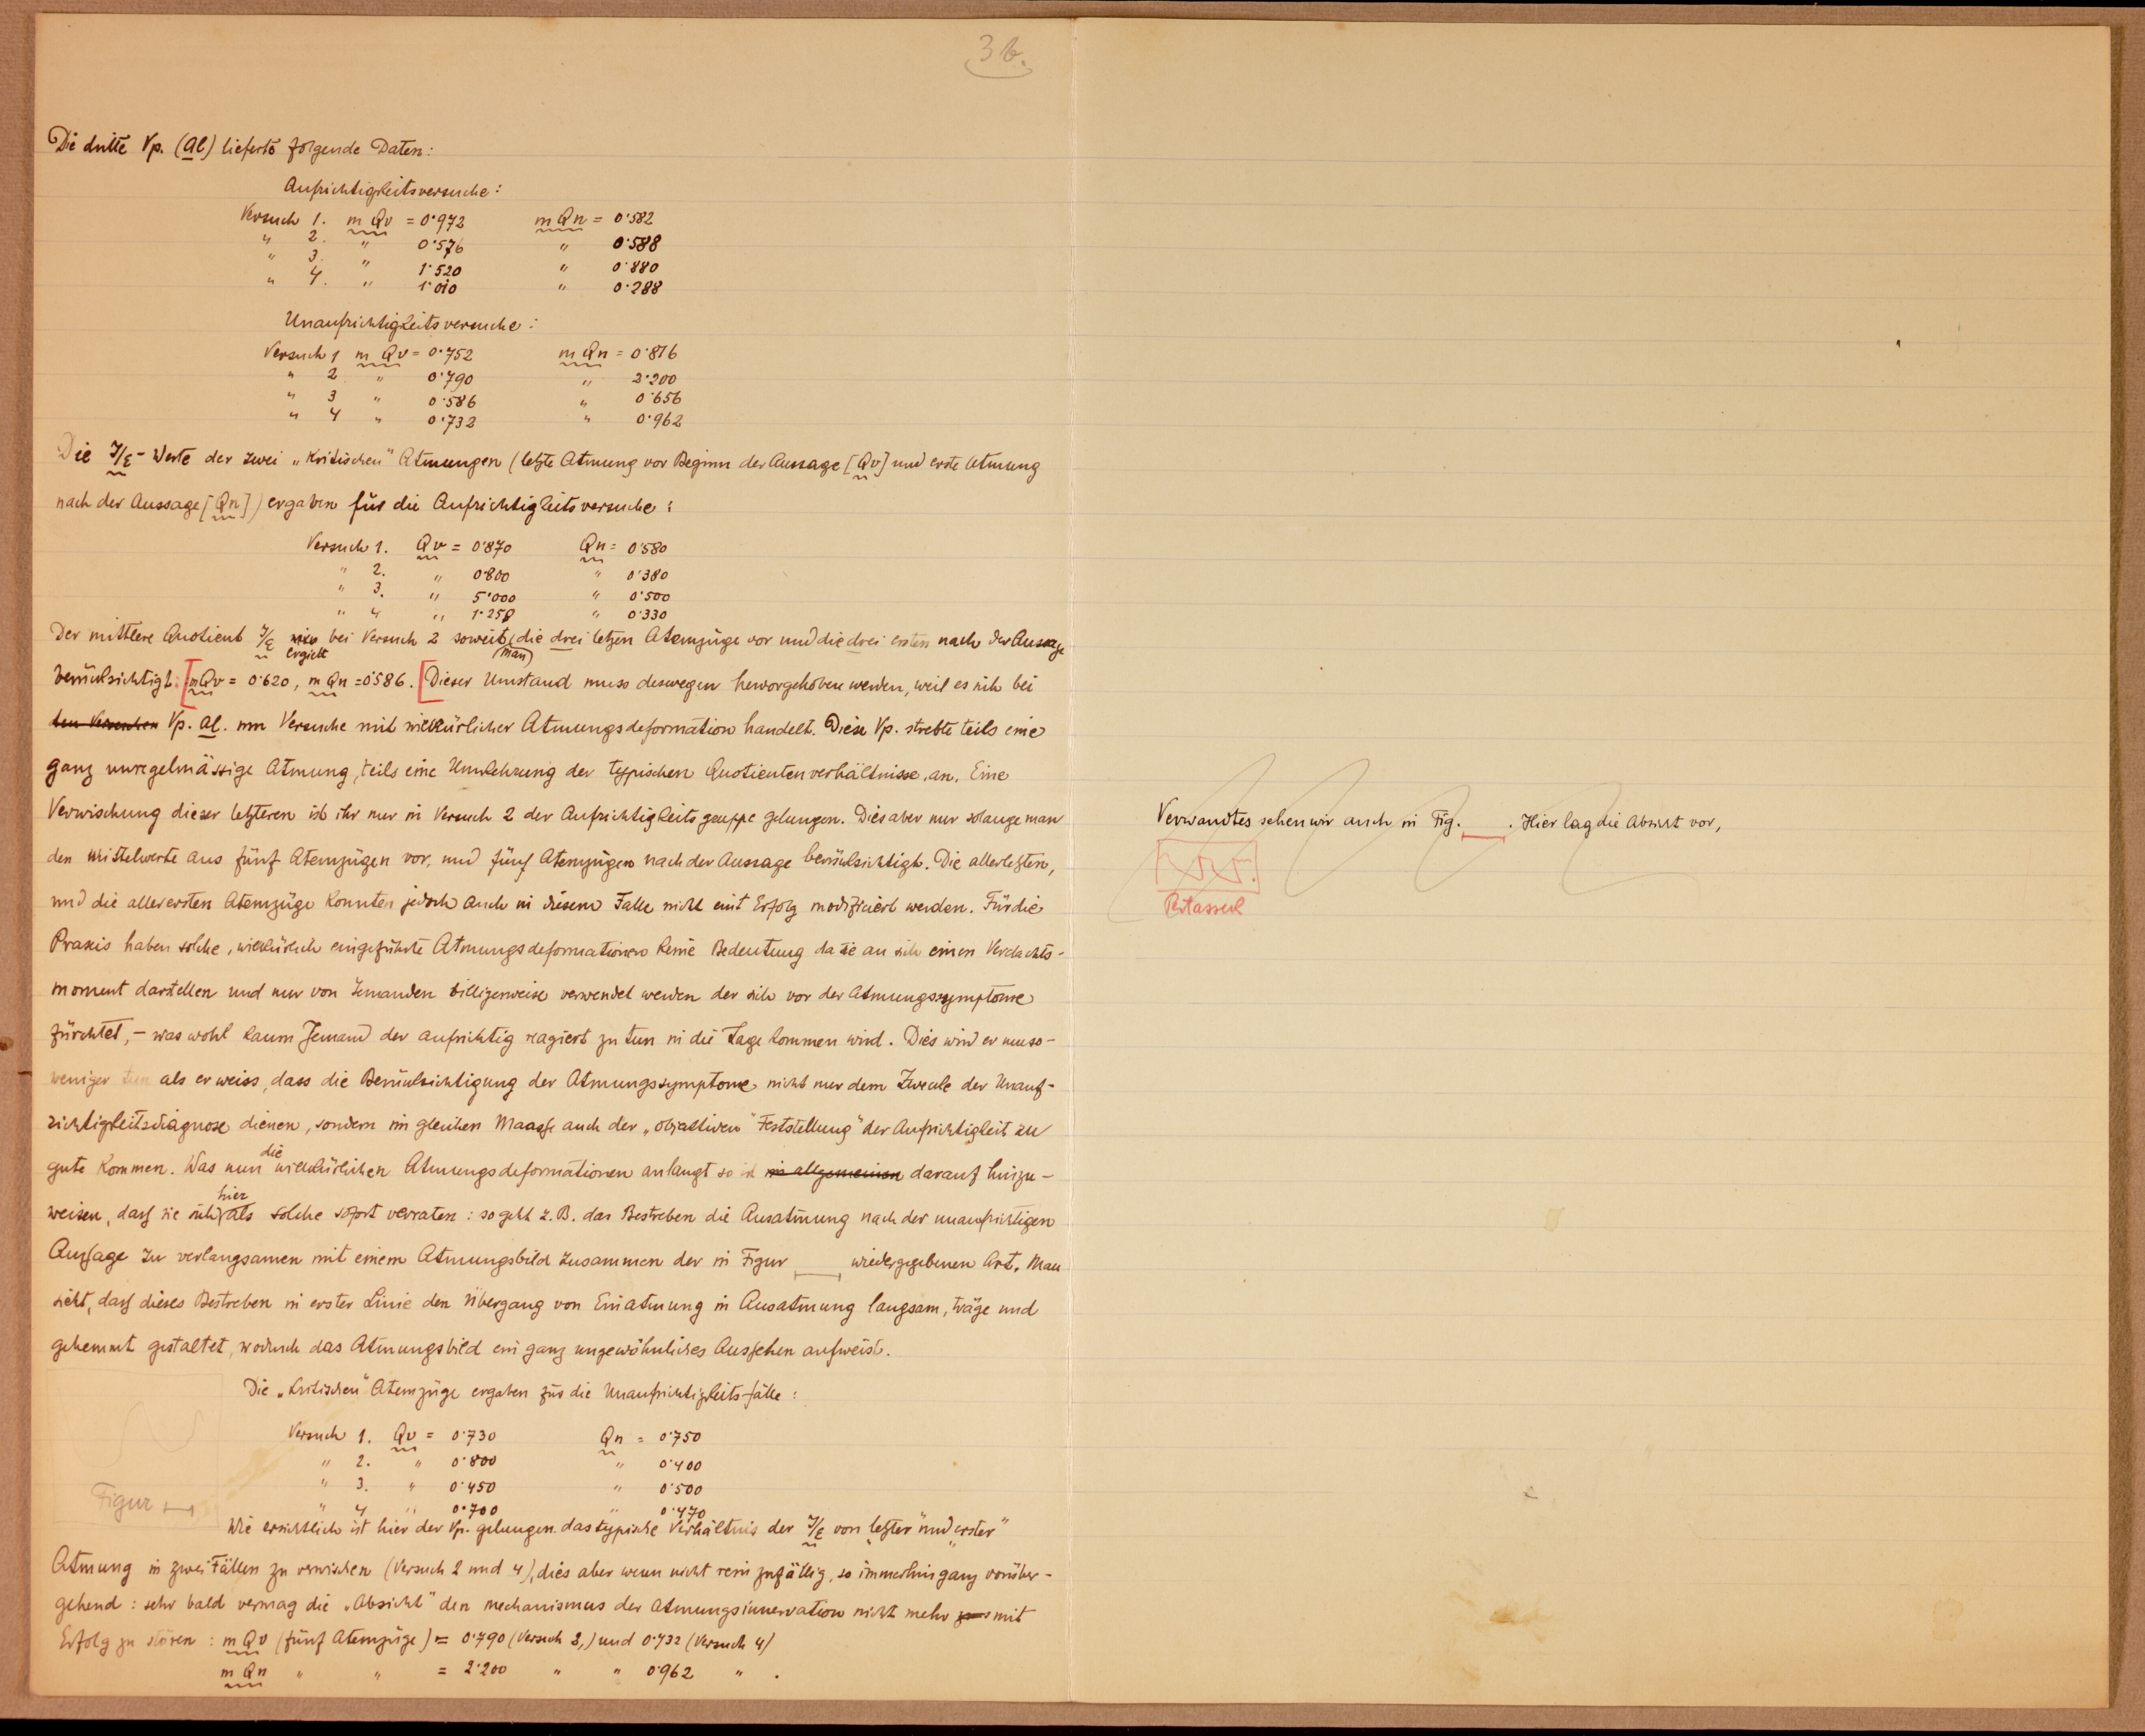 36.
Die dritte Vp. (Al) lieferte folgende Daten:
Aufrichtigkeitsversuche:
Versuch 1. m Qv = 0·972 m Qn = 0·582
" 2. " 0·576 " 0·588
" 3. " 1·520 " 0·880
" 4. " 1·010 " 0·288
Unaufrichtigkeitsversuche:
Versuch 1 m Qv = 0·752 m Qn = 0·816
" 2 " 0·790 " 2·200
" 3 " 0·586 " 0·656
" 4 " 0·732 " 0·962
Die J/E - Werte der zwei „kritischen" Atmungen (letzte Atmung vor Beginn der Aussage [Qv] und erste Atmung
nach der Aussage [Qn]) ergaben für die Aufrichtigkeitsversuche:
Versuch 1. Qv = 0·870 Qn = 0·580
" 2. " 0·800 " 0·380
" 3. " 5·000 " 0·500
" 4 " 1·250 " 0·330
Der mittlere Quotient J/E ergiebt bei Versuch 2 soweit (man) die drei letzen Atemzüge vor und die drei ersten nach der Aussage
berücksichtigt: [m Qv = 0·620, m Qn = 0·586. [Dieser Umstand muss deswegen hervorgehoben werden, weil es sich bei
den Versuchen Vp. Al. um Versuche mit willkürlicher Atmungsdeformation handelt. Diese Vp. strebte teils eine
ganz unregelmässige Atmung, teils eine Umkehrung der typischen Quotientenverhältnisse an. Eine
Verwischung dieser letzteren ist ihr nur in Versuch 2 der Aufrichtigkeitsgruppe gelungen. Dies aber nur solange man
den Mittelwerte aus fünf Atemzügen vor, und fünf Atemzügen nach der Aussage berücksichtigt. Die allerletzten,
und die allerersten Atemzüge konnten jedoch auch in diesem Falle nicht mit Erfolg modifiziert werden. Für die
Praxis haben solche, willkürlich eingeführte Atmungsdeformationen keine Bedeutung da sie an sich einen Verdachts-
moment darstellen und nur von Jemanden billigerweise verwendet werden der sich vor der Atmungssymptome
fürchtet, - was wohl kaum Jemand der aufrichtig reagiert zu tun in die Lage kommen wird. Dies wird er umso-
weniger tun als er weiss, dass die Berücksichtigung der Atmungssymptome nicht nur dem Zwecke der Unauf-
richtigkeitsdiagnose dienen, sondern im gleichen Maasse auch der „objektiven" Feststellung" der Aufrichtigkeit zu
gute kommen. Was nun die willkürlichen Atmungsdeformationen anlangt so ist im allgemeinen darauf hinzu-
weisen, dass sie sich hier als solche sofort verraten: so geht z.B. das Bestreben die Ausatmung nach der unaufrichtigen
Aussage zu verlangsamen mit einem Atmungsbild zusammen der in Figur wiedergegebenen Art. Man
sieht, dass dieses Bestreben in erster Linie den Übergang von Einatmung in Ausatmung langsam, träge und
gehemmt gestaltet, wodurch das Atmungsbild ein ganz ungewöhnliches Aussehen aufweist.
Die „kritischen" Atemzüge ergaben für die Unaufrichtigkeits-fälle:
Versuch 1. Qv = 0·730 Qn = 0·750
" 2. " 0·800 " 0·400
" 3. " 0·450 " 0·500
" 4 " 0·700 " 0·470
Figur
Wie ersichtlich ist hier der Vp. gelungen das typische Verhältnis der J/E von „letzter" und „erster"
Atmung in zwei Fällen zu verwischen (Versuch 2 und 4), dies aber wenn nicht rein zufällig, so immerhin ganz vorüber-
gehend: sehr bald vermag die „Absicht" den Mechanismus der Atmungsinnervation nicht mehr mit
Erfolg zu stören: m Qv (fünf Atemzüge) = 0·790 (Versuch 2,) und 0·732 (Versuch 4)
m Qn " " = 2·200 " " 0·962 " .
Verwandtes sehen wir auch in Fig. . Hier lag die Absicht vor,